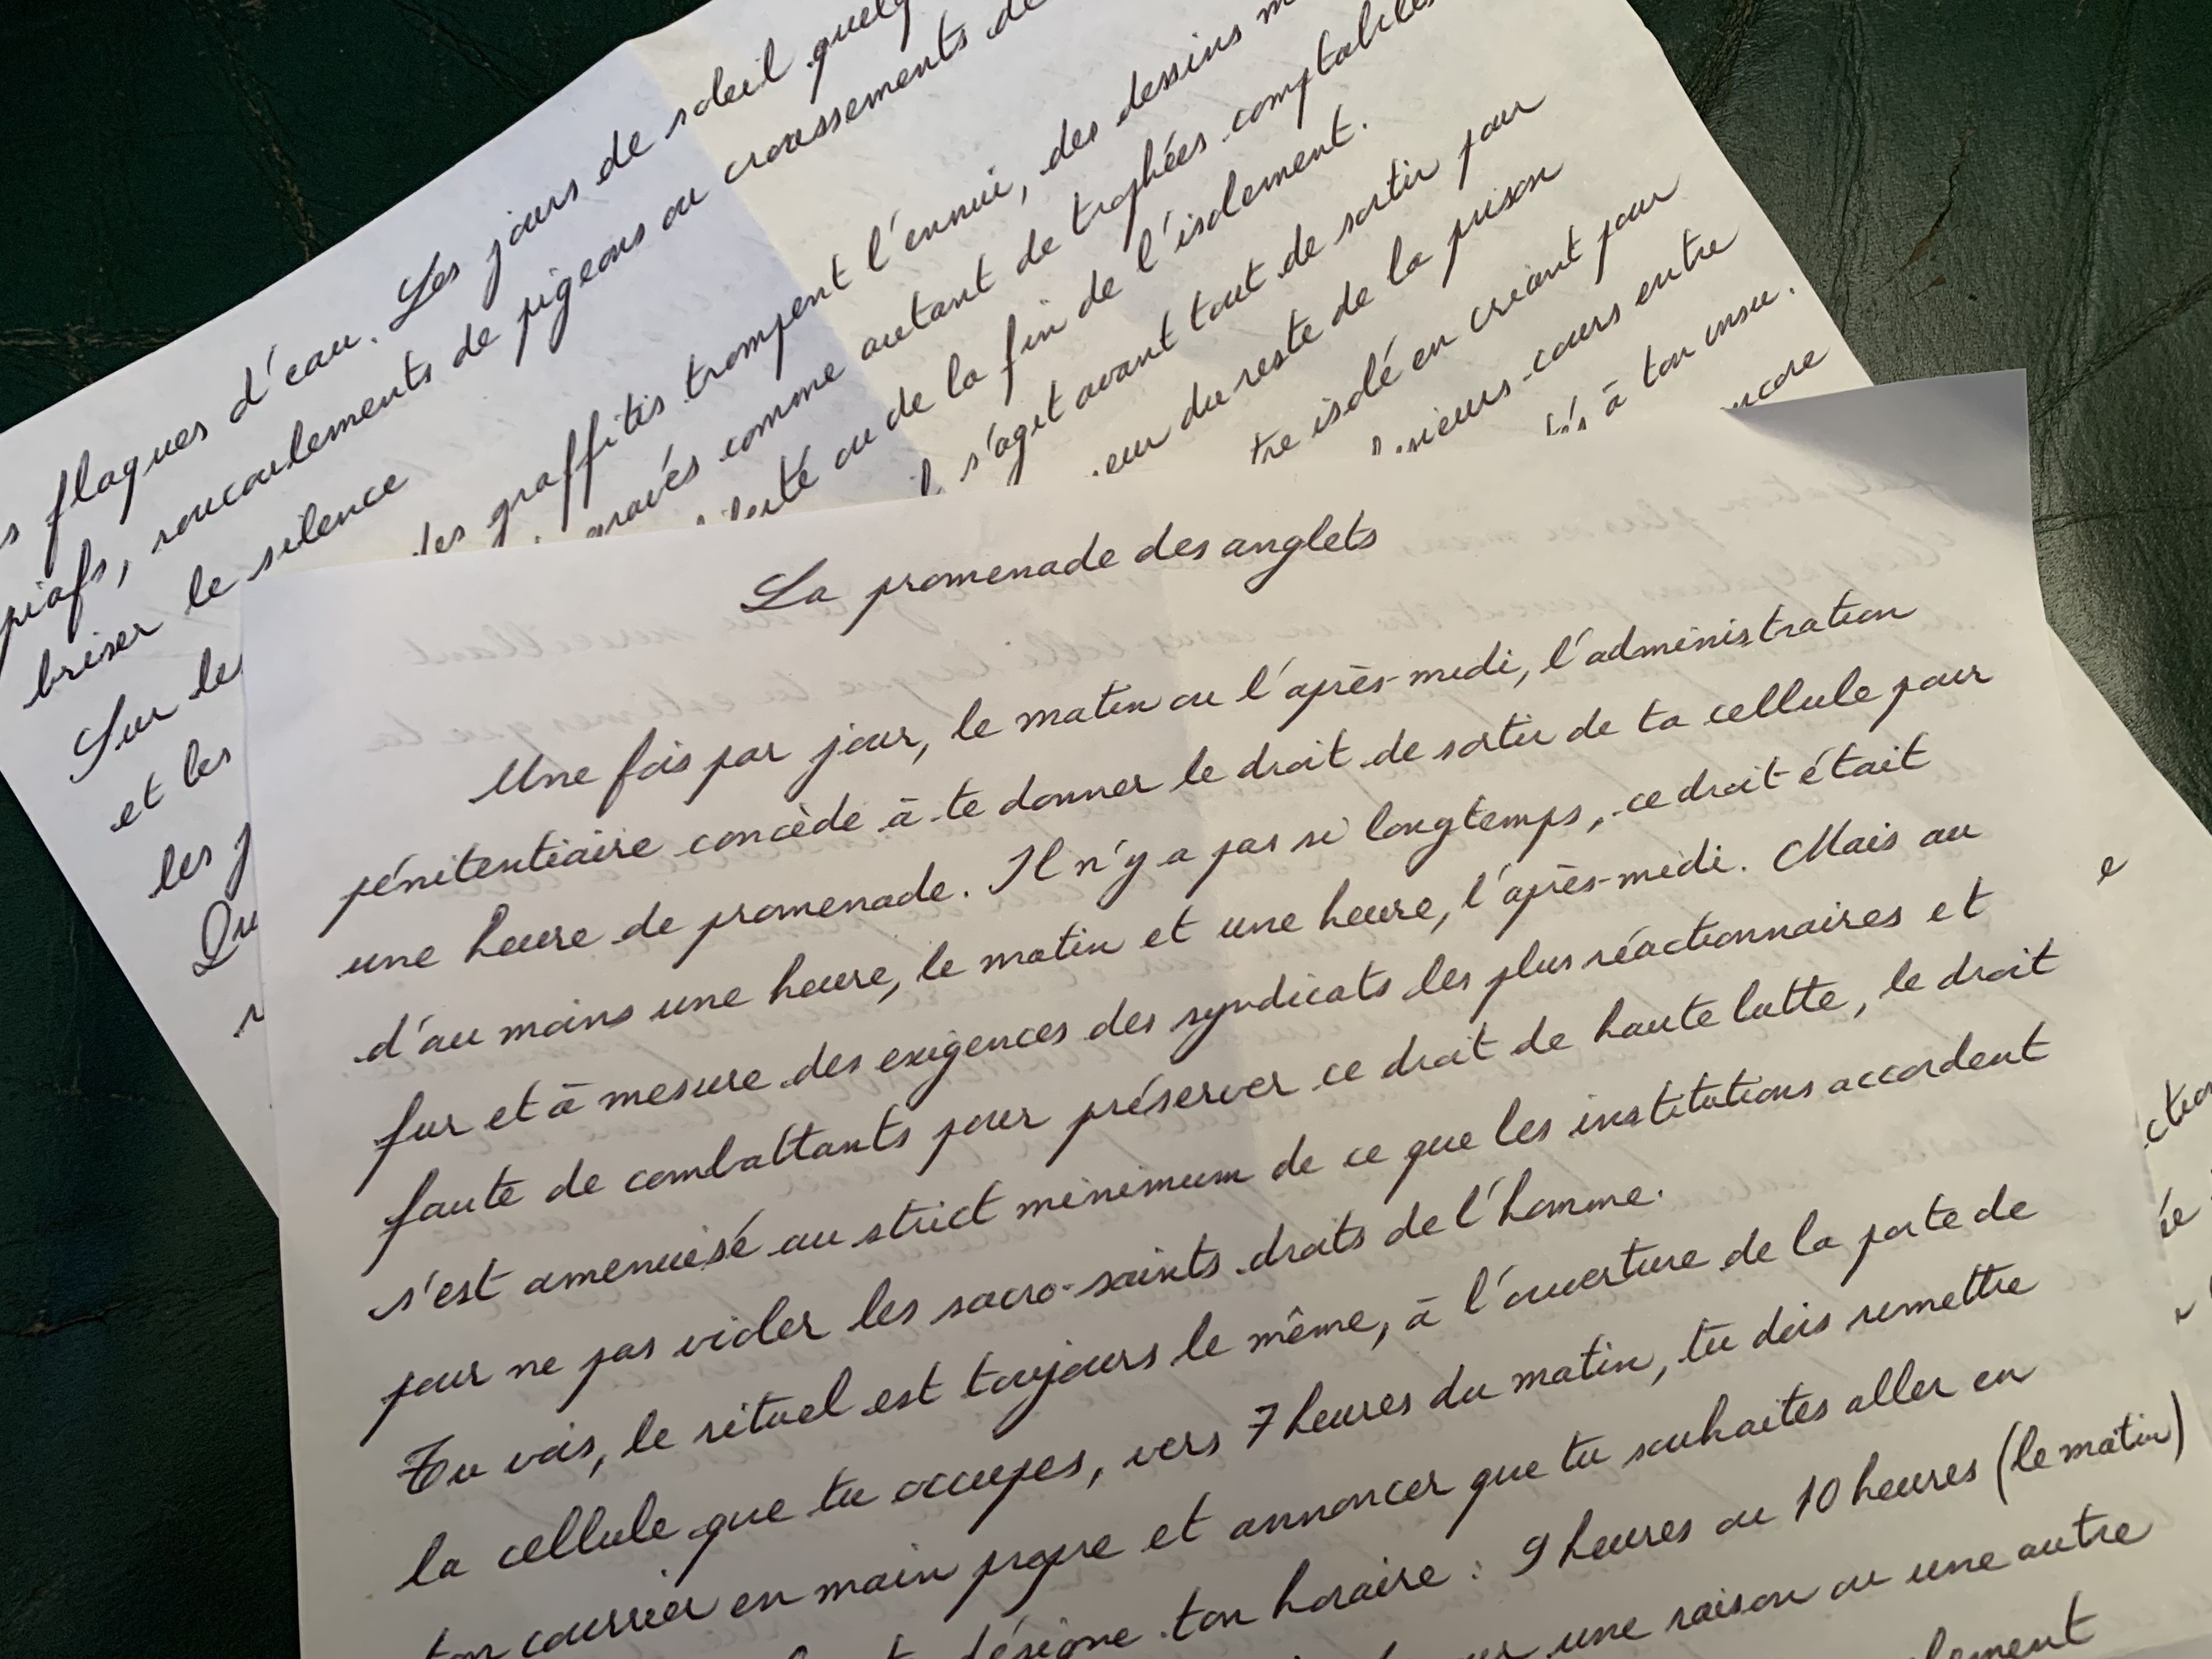 flaques d'eau. Les jours de soleil
piafs, roucoulements de pigeons ou croassements de
briser le silence
Sur les graffitis trompent l'ennui, des dessins
et les gravés comme autant de trophées comptables
les ou de la fin de l'isolement.
s'agit avant tout de sortir pour
du reste de la prison
isolé en criant pour
cours entre
à ton insu.
La promenade des anglets
Une fois par jour, le matin ou l'après-midi, l'administration
pénitentiaire concède à te donner le droit de sortir de ta cellule pour
une heure de promenade. Il n'y a pas si longtemps, ce droit était
d'au moins une heure, le matin et une heure, l'après-midi. Mais au
fur et à mesure des exigences des syndicats les plus réactionnaires et
faute de combattants pour préserver ce droit de haute lutte, le droit
s'est amenuisé au strict minimum de ce que les institutions accordent
pour ne pas vider les sacro-saints droits de l'homme.
Tu vois, le rituel est toujours le même, à l'ouverture de la porte de
la cellule que tu occupes, vers 7 heures du matin, tu dois remettre
ton courrier en main propre et annoncer que tu souhaites aller en
désigne ton horaire : 9 heures ou 10 heures (le matin)
une raison ou une autre